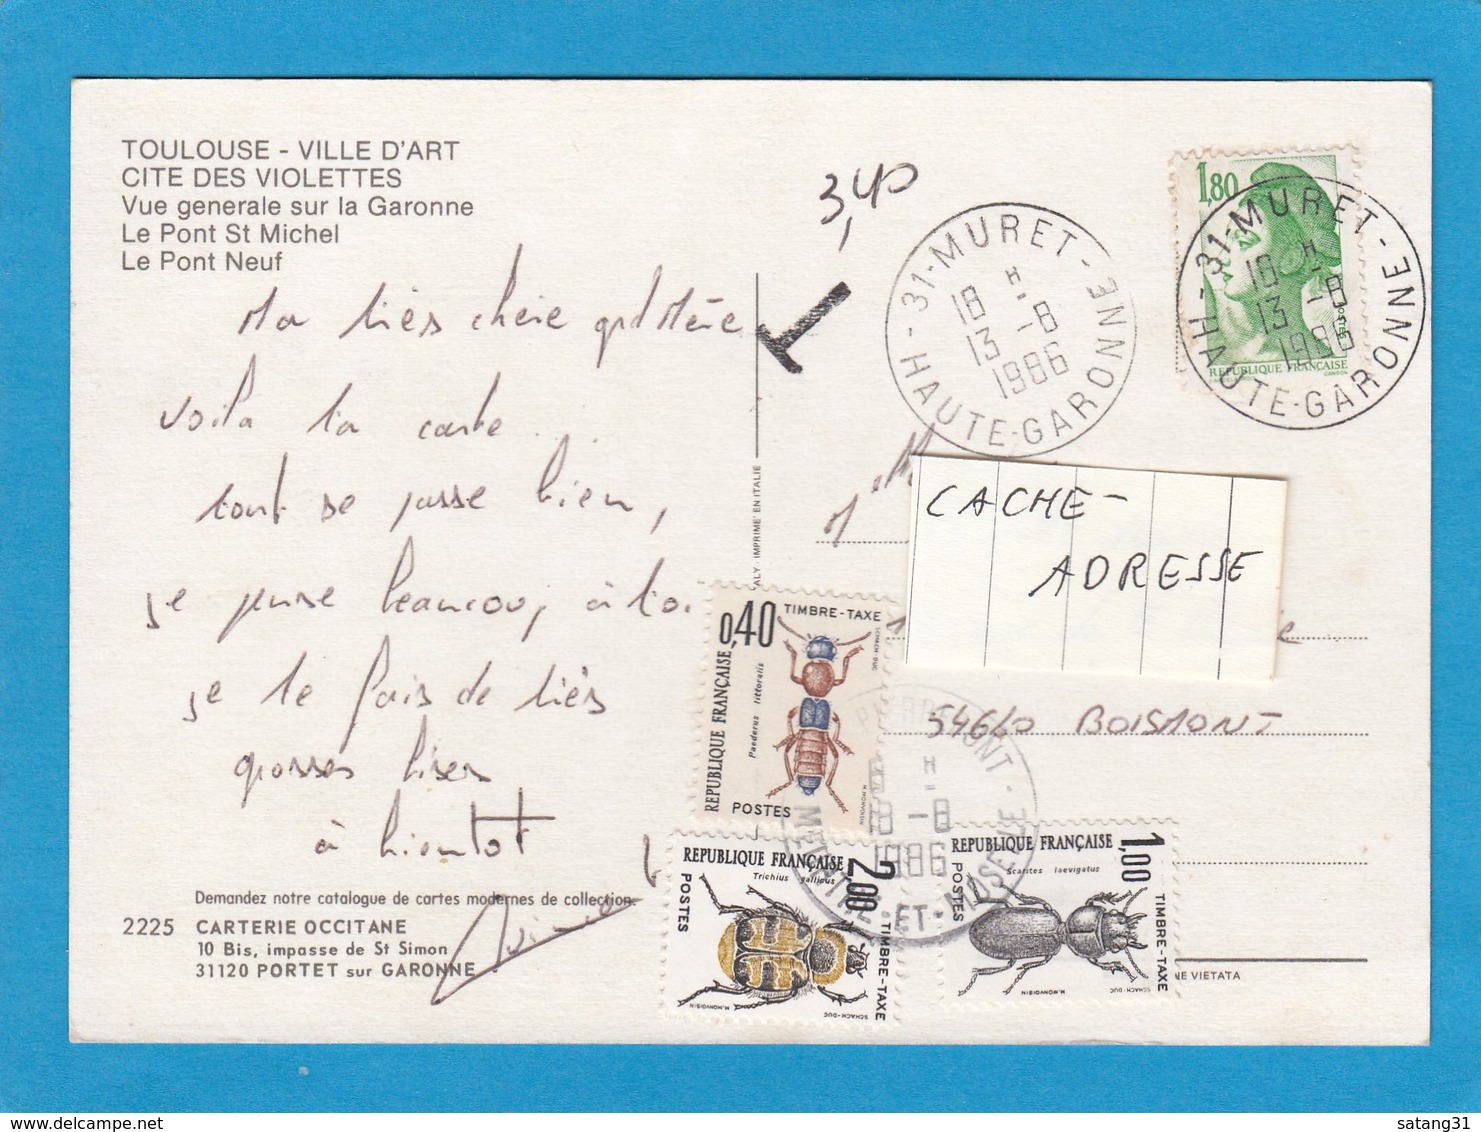 TOULOUSE - VILLE D'ART
CITE DES VIOLETTES
Vue generale sur la Garonne
Le Pont St Michel
Le Pont Neuf
Ma très chère gd Mère
voila ta carte.
tout se passe bien,
je pense beaucoup à toi.
je te fais de très
grosses bises
à bientôt
Demandez notre catalogue de cartes modernes de collection.
2225 CARTERIE OCCITANE
10 Bis, impasse de St Simon
31120 PORTET sur GARONNE
ALY - IMPRIME' EN ITALIE
3,40
T
31-MURET
18 H
13 -8
1986
HAUTE-GARONNE
1,80
POSTES
REPUBLIQUE FRANÇAISE
GANDON
31-MURET
18 H
13 -8
1986
HAUTE-GARONNE
CACHE-
ADRESSE
54640 BOISMONT
PIERREPONT - 54
H
18 -8
1986
MEURTHE-ET-MOSELLE
0,40
TIMBRE-TAXE
SCHACH-DUC
REPUBLIQUE FRANÇAISE
Paederus littoralis
H. MONVOISIN
POSTES
REPUBLIQUE FRANÇAISE
2,00
Trichius gallicus
POSTES
TIMBRE-TAXE
H. MONVOISIN
SCHACH-DUC
REPUBLIQUE FRANÇAISE
1,00
Scarites laevigatus
POSTES
TIMBRE-TAXE
H. MONVOISIN
SCHACH-DUC
NE VIETATA
satang31